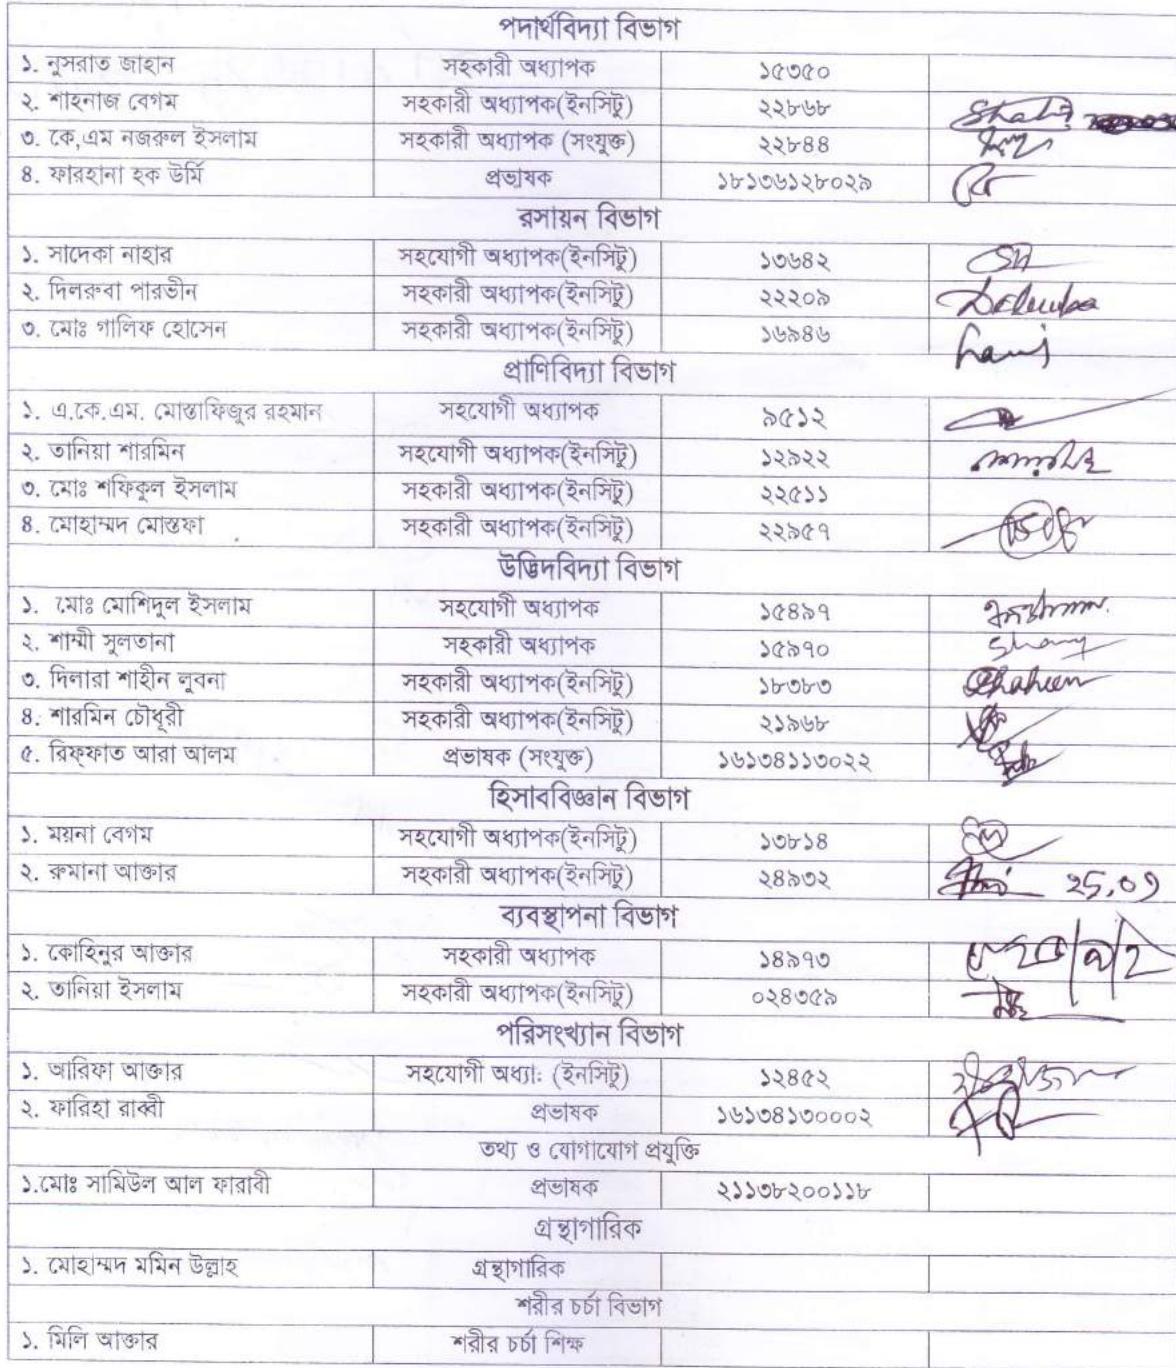 পদার্থবিদ্যা বিভাগ
১. নুসরাত জাহান সহকারী অধ্যাপক ১৫৩৫০
২. শাহনাজ বেগম সহকারী অধ্যাপক(ইনসিটু) ২২৮৬৮
৩. কে,এম নজরুল ইসলাম সহকারী অধ্যাপক (সংযুক্ত) ২২৮৪৪
৪. ফারহানা হক উর্মি প্রভাষক ১৮১৩৬১২৮০২৯
রসায়ন বিভাগ
১. সাদেকা নাহার সহযোগী অধ্যাপক(ইনসিটু) ১৩৬৪২
২. দিলরুবা পারভীন সহকারী অধ্যাপক(ইনসিটু) ২২২০৯
৩. মোঃ গালিফ হোসেন সহকারী অধ্যাপক(ইনসিটু) ১৬৯৪৬
প্রাণিবিদ্যা বিভাগ
১. এ.কে.এম. মোস্তাফিজুর রহমান সহযোগী অধ্যাপক ৯৫১২
২. তানিয়া শারমিন সহযোগী অধ্যাপক(ইনসিটু) ১২৯২২
৩. মোঃ শফিকুল ইসলাম সহকারী অধ্যাপক(ইনসিটু) ২২৫১১
৪. মোহাম্মদ মোস্তফা সহকারী অধ্যাপক(ইনসিটু) ২২৯৫৭
উদ্ভিদবিদ্যা বিভাগ
১. মোঃ মোশিদুল ইসলাম সহযোগী অধ্যাপক ১৫৪৯৭
২. শাম্মী সুলতানা সহকারী অধ্যাপক ১৫৯৭০
৩. দিলারা শাহীন লুবনা সহকারী অধ্যাপক(ইনসিটু) ১৮৩৮৩
৪. শারমিন চৌধূরী সহকারী অধ্যাপক(ইনসিটু) ২১৯৬৮
৫. রিফ্ফাত আরা আলম প্রভাষক (সংযুক্ত) ১৬১৩৪১১৩০২২
হিসাববিজ্ঞান বিভাগ
১. ময়না বেগম সহযোগী অধ্যাপক(ইনসিটু) ১৩৮১৪
২. রুমানা আক্তার সহকারী অধ্যাপক(ইনসিটু) ২৪৯৩২
ব্যবস্থাপনা বিভাগ
১. কোহিনুর আক্তার সহকারী অধ্যাপক ১৪৯৭৩
২. তানিয়া ইসলাম সহকারী অধ্যাপক(ইনসিটু) ০২৪৩৫৯
পরিসংখ্যান বিভাগ
১. আরিফা আক্তার সহযোগী অধ্যাঃ (ইনসিটু) ১২৪৫২
২. ফারিহা রাব্বী প্রভাষক ১৬১৩৪১৩০০০২
তথ্য ও যোগাযোগ প্রযুক্তি
১.মোঃ সামিউল আল ফারাবী প্রভাষক ২১১৩৮২০০১১৮
গ্রন্থাগারিক
১. মোহাম্মদ মমিন উল্লাহ গ্রন্থাগারিক
শরীর চর্চা বিভাগ
১. মিলি আক্তার শরীর চর্চা শিক্ষ